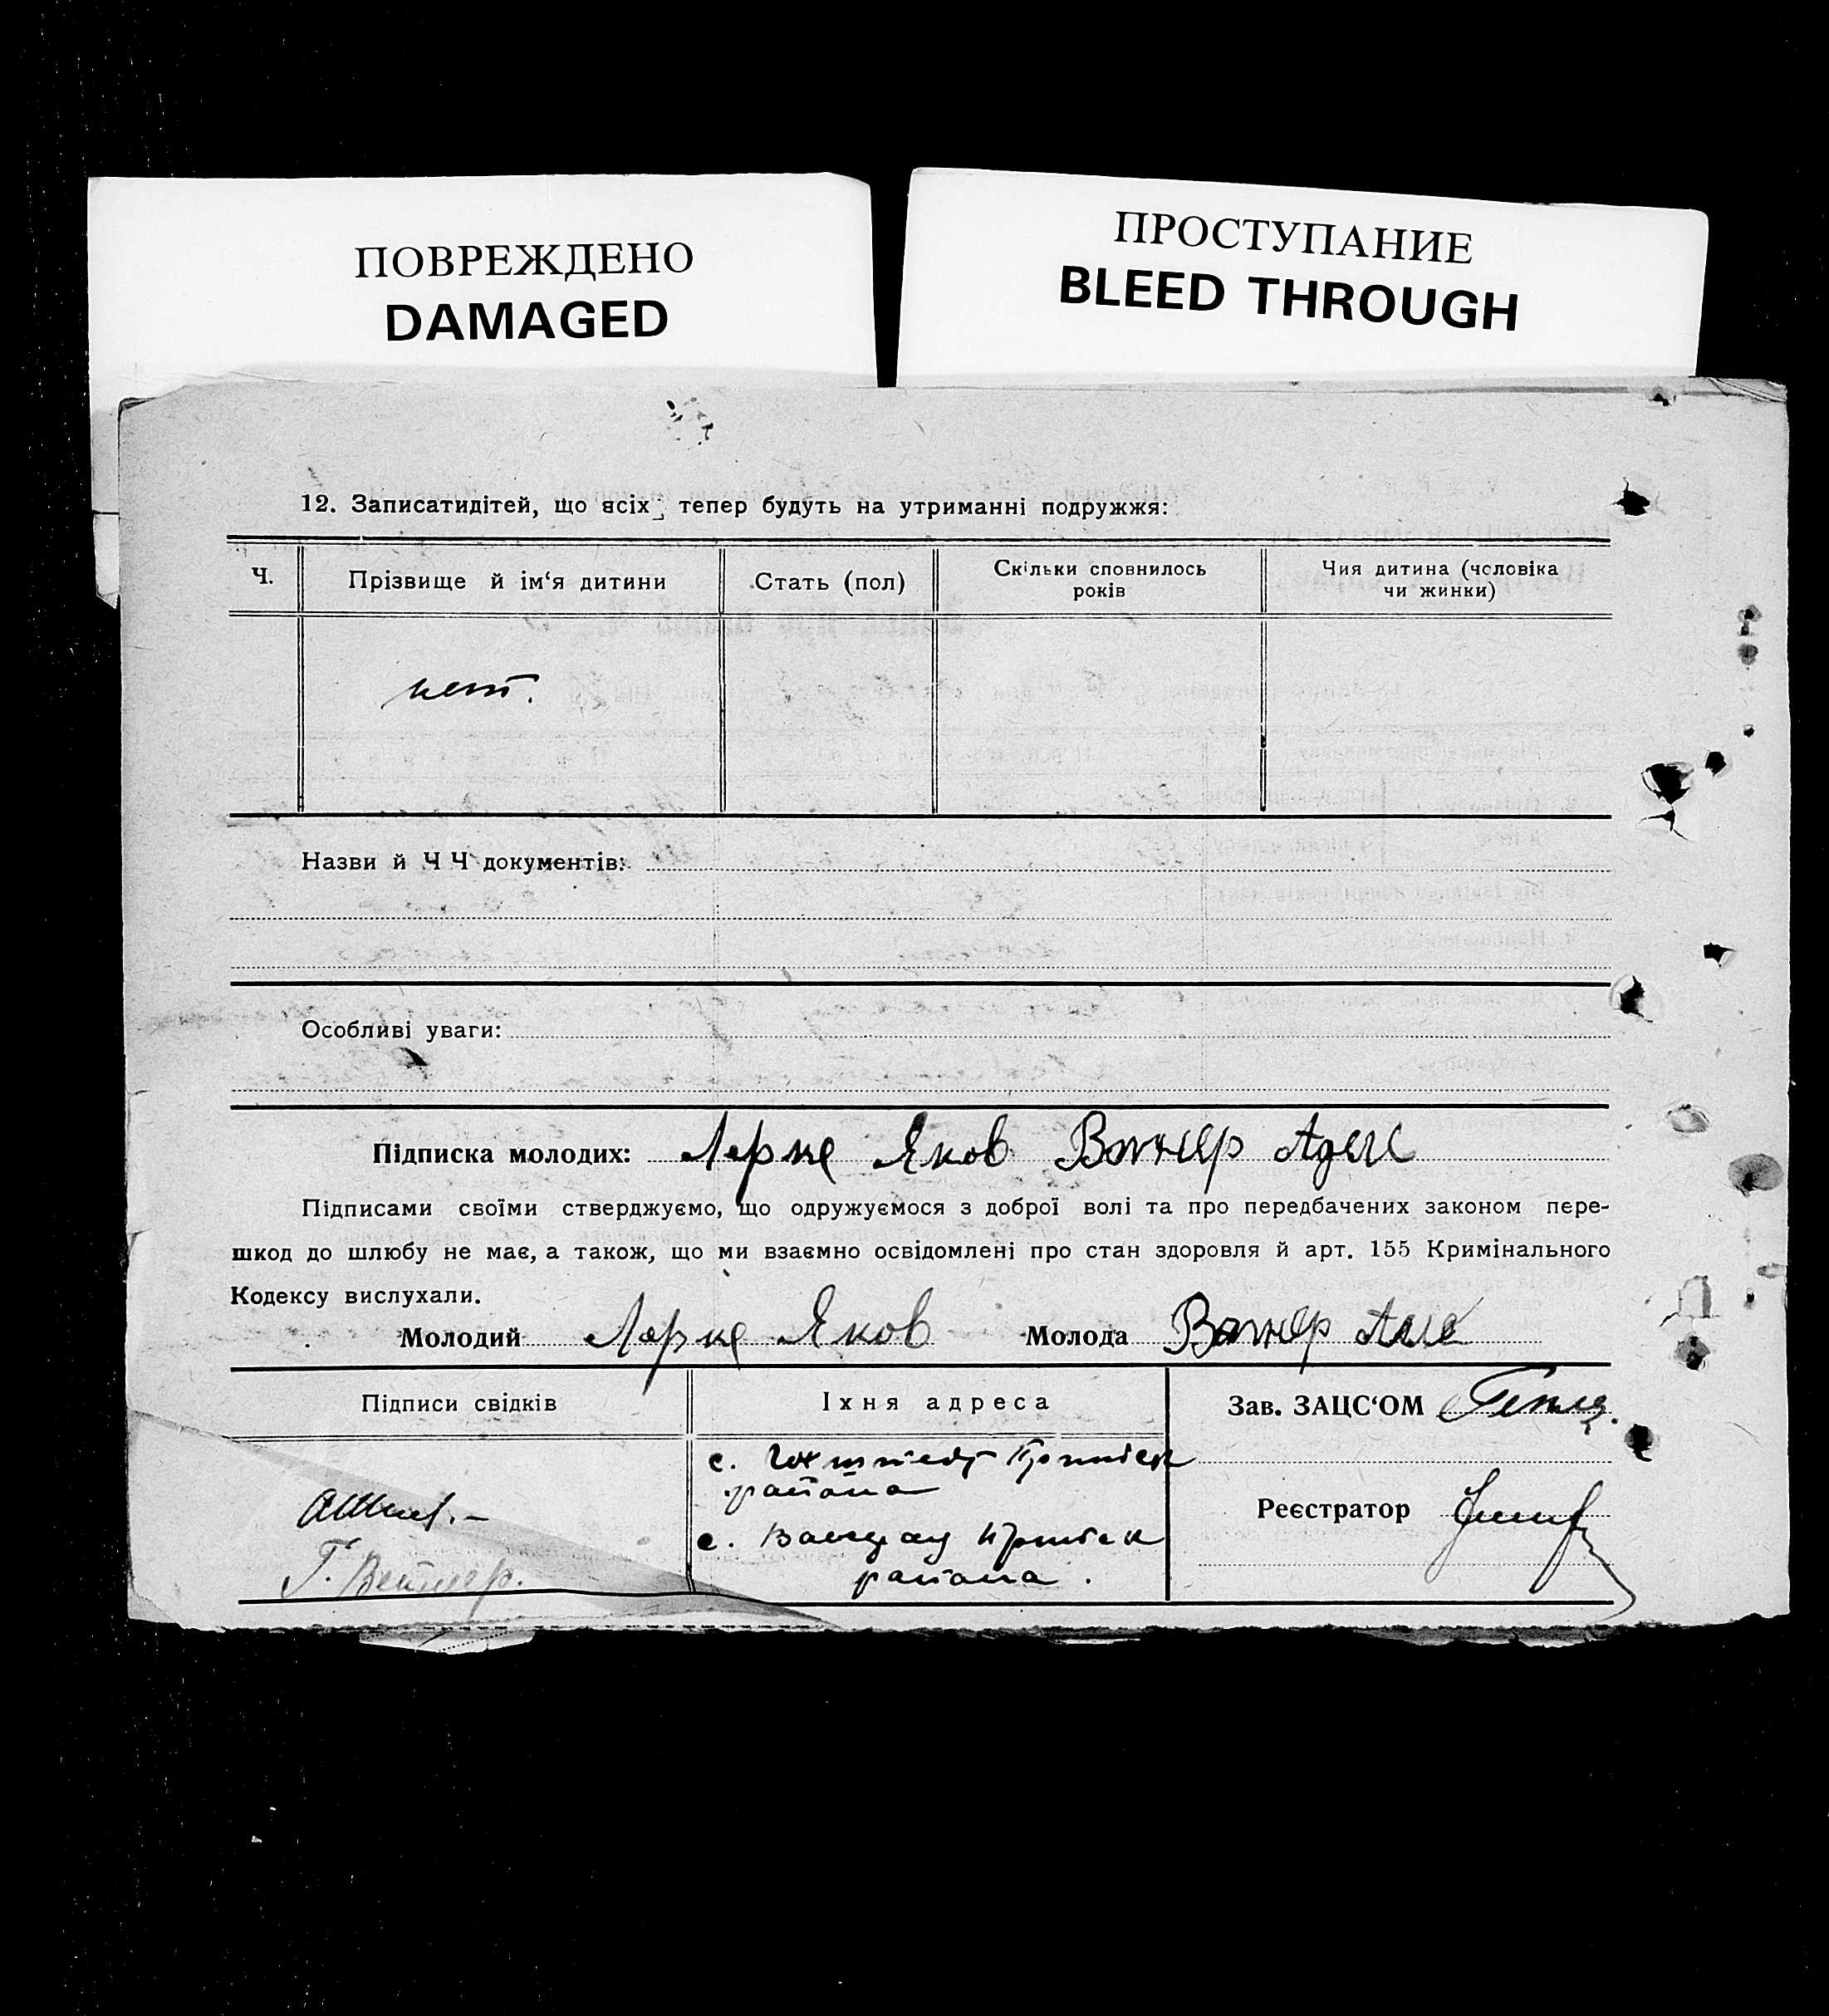 ПОВРЕЖДЕНО
DAMAGED
ПРОСТУПАНИЕ
BLEED THROUGH
12. Записатидітей, що всіх тепер будуть на утриманні подружжя:
Ч.
Прізвище й ім‘я дитини
Стать (пол)
Скільки сповнилось
років
Чия дитина (чсловіка
чи жинки)
нет.
Назви й Ч Ч документів:
Особливі уваги:
Підписка молодих: Лерке Яков Вагнер Аделе
Підписами своїми стверджуємо, що одружуємося з доброї волі та про передбачених законом пере-
шкод до шлюбу не має, а також, що ми взаємно освідомлені про стан здоровля й арт. 155 Кримінального
Кодексу вислухали.
Молодий Лерке Яков Молода Вагнер
Підписи свідків
Іхня адреса
Зав. ЗАЦС‘ОМ
с.
района
с.
района.
Реєстратор
Г.